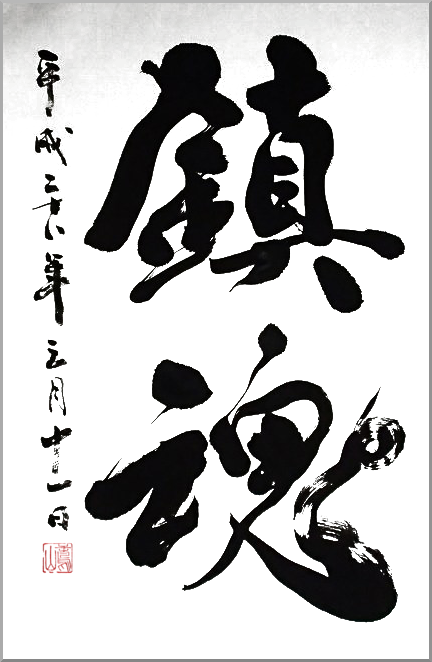 鎮魂
平成二十八年三月十一日